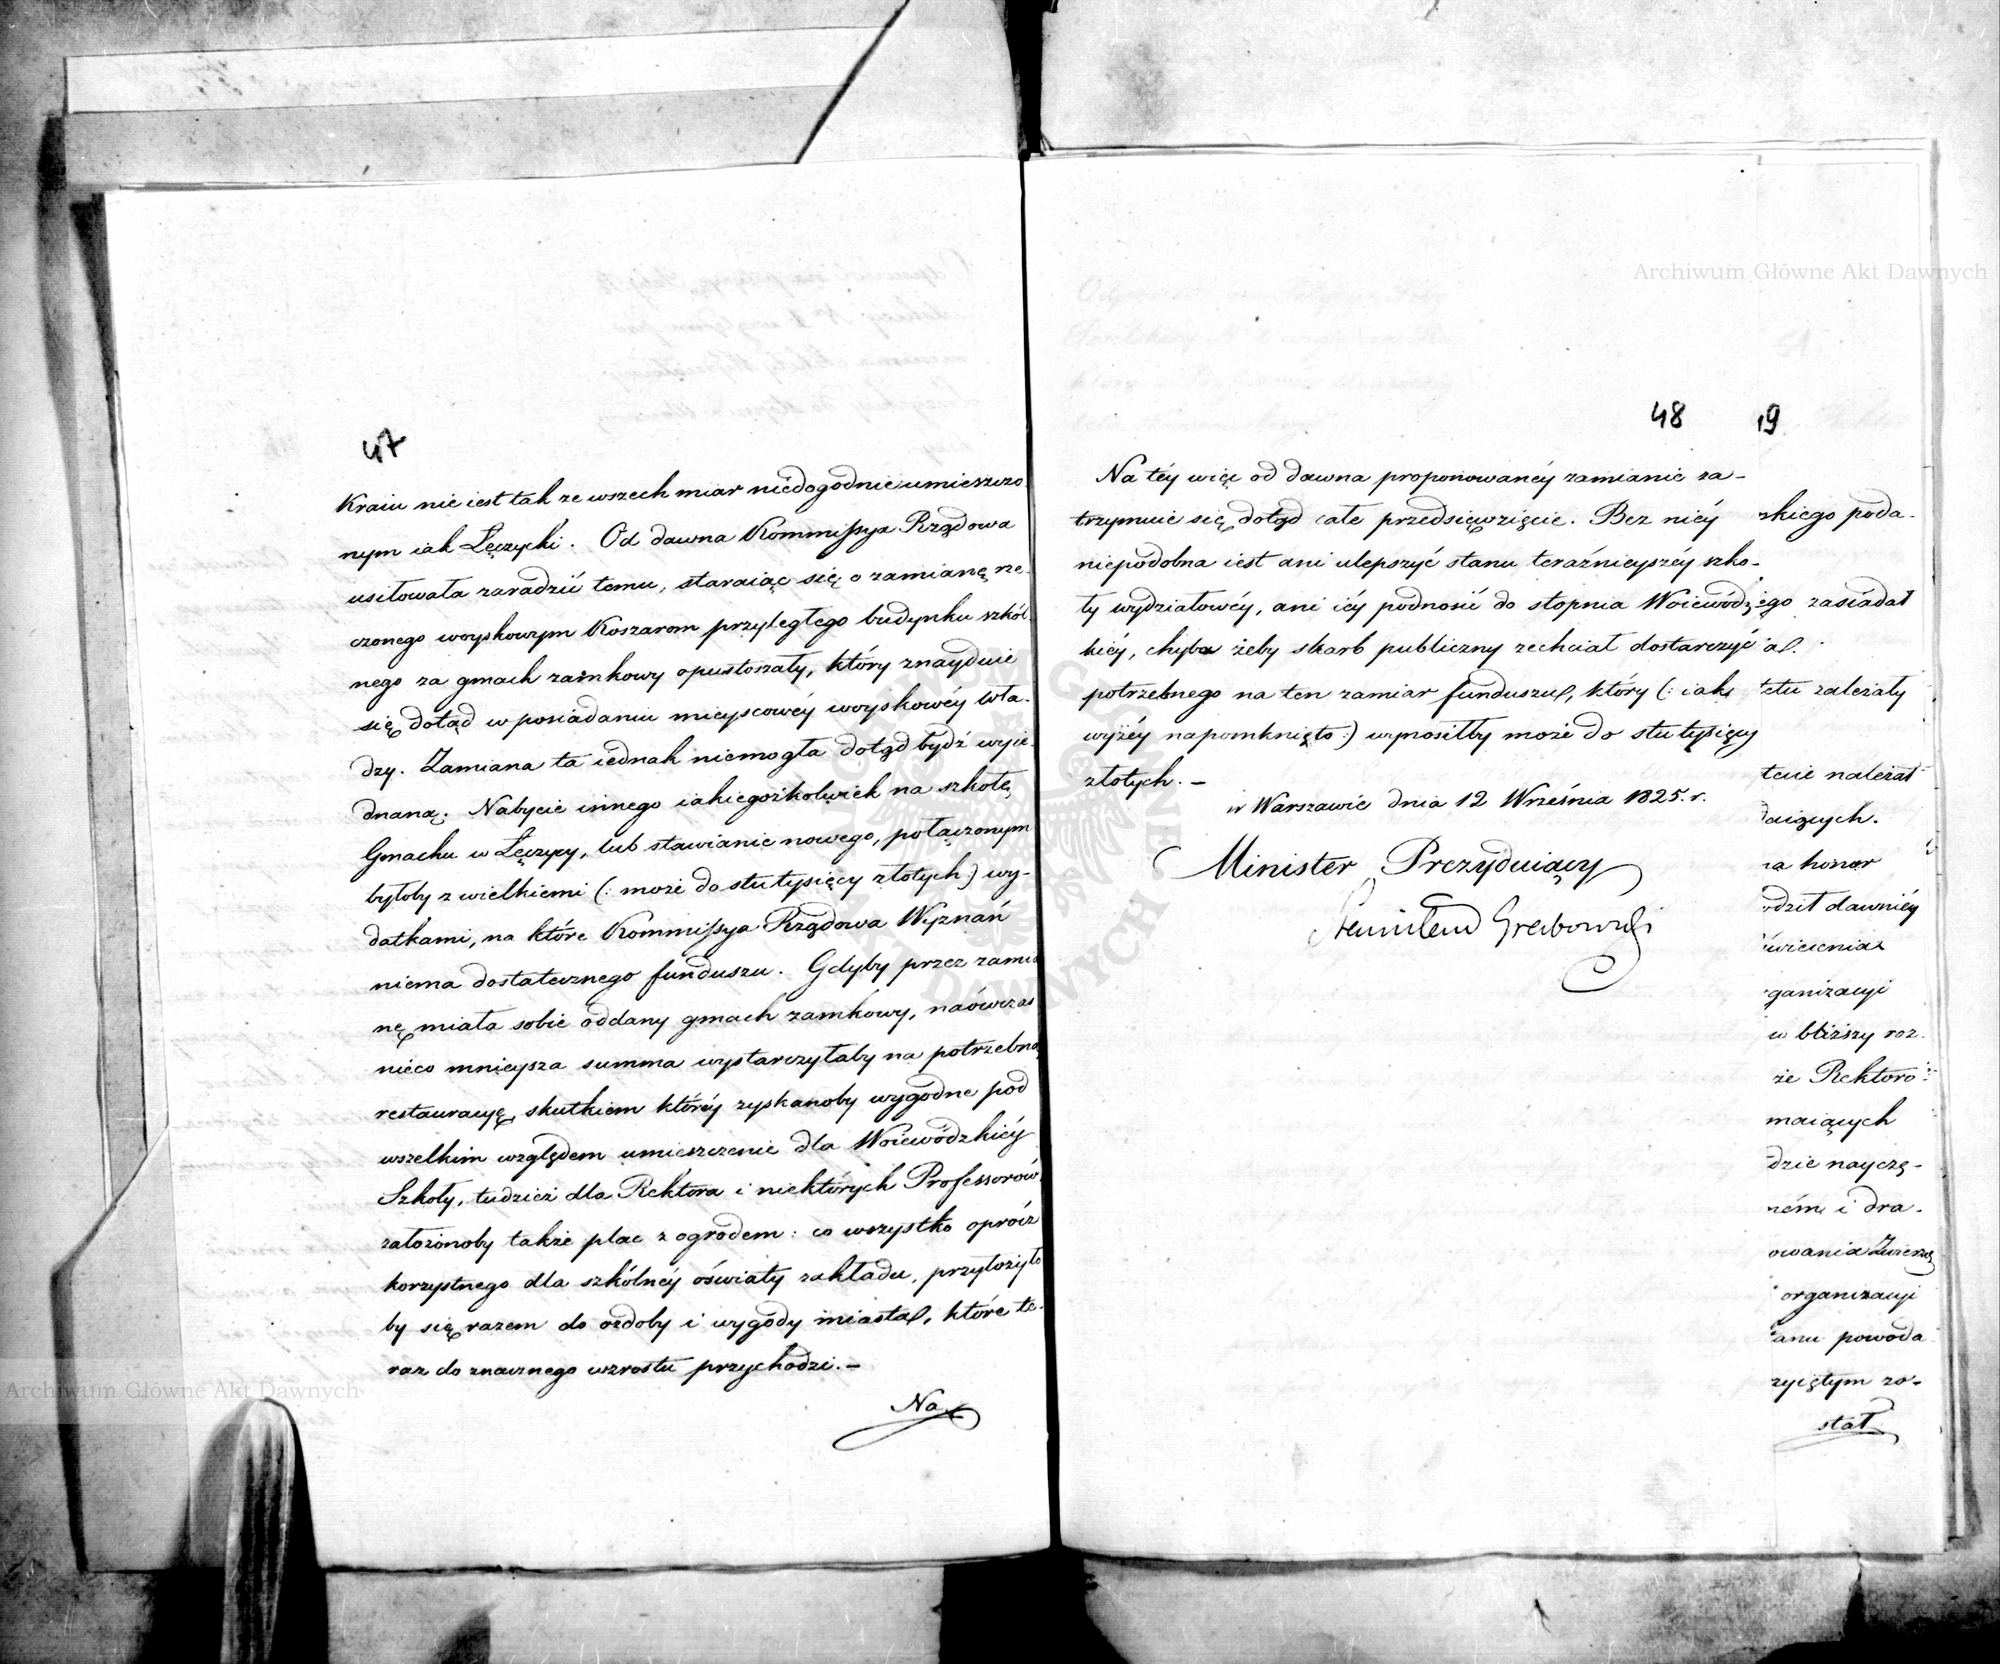 47
Kraiu nie iest tak ze wszech miar niedogodnie umieszczo
nym iak Łęczycki. Od dawna Kommissya Rządowa
usiłowała zaradzić temu, staraiąc się o zamianę rze-
czonego woyskowym Koszarom przyległego budynku szkól
nego za gmach zamkowy opustoszały, który znayduie
się dotąd w posiadaniu mieyscowéy woyskowéy wła-
dzy. Zamiana ta iednak niemogła dotąd bydź wyie-
dnaną. Nabycie innego iakiegożkolwiek na szkołę
Gmachu w Łęczycy, lub stawianie nowego, połączonym
byłoby z wielkiemi (: może do stu tysięcy złotych:) wy-
datkami, na które Kommissya Rządowa Wyznań
niema dostatecznego funduszu. Gdyby przez zamia
nę miała sobie oddany gmach zamkowy, naówczas
nieco mnieysza summa wystarczyłaby na potrzebną
restauracyę, skutkiem któréy zyskanoby wygodne pod
wszelkim względem umieszczenie dla Woiewódzkiéy
Szkoły, tudzież dla Rektora i niektórych Professorów,
założonoby także plac z ogrodem: co wszystko oprócz
korzystnego dla szkólnéy oświaty zakładu, przyłożyło
by się razem do ozdoby i wygody miasta, które te-
raz do znacznego wzrostu przychodzi.—
Na
48
Na téy więc od dawna proponowanéy zamianie za-
trzymuie się dotąd całe przedsięwzięcie. Bez niéy
niepodobna iest ani ulepszyć stanu teraźnieyszéy szko-
ły wydziałowéy, ani iéy podnosić do stopnia Woiewódz
kiéy, chyba żeby skarb publiczny zechciał dostarczyć
potrzebnego na ten zamiar funduszu, który (: iak
wyżéy napomknięto:) wynosiłby może do stu tysięcy
złotych.—
w Warszawie dnia 12 Września 1825. r.
Minister Prezyduiący
Stanisław Grabowski
19
skiego poda-
ego zasiadał
al.
tetu zależały
tecie należał
daiących.
na honor
odził dawniéy
świecenia
rganizacyi
w bliższy roz-
że Rektoro-
maiących
dzie nayczę-
ném i dra-
owania Zwierzę
organizacyi
anu powoda
zyiętym zo-
stał
Archiwum Główne Akt Dawnych
Archiwum Główne Akt Dawnych